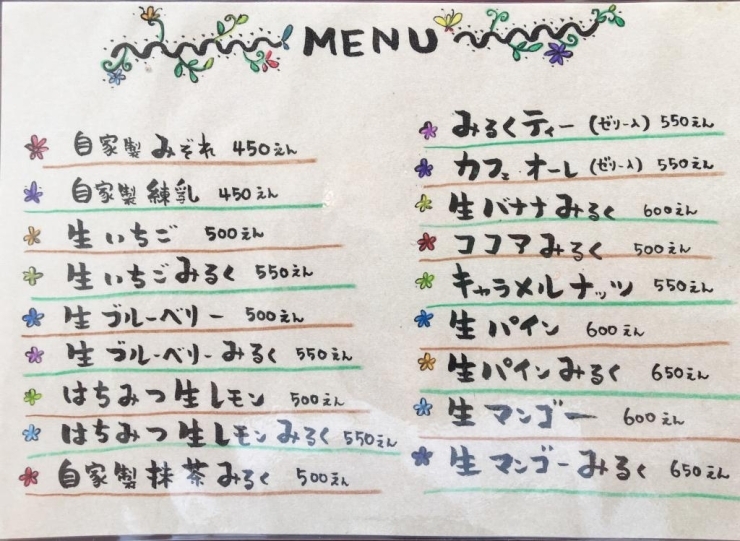 MENU
自家製 みぞれ 450えん
自家製 練乳 450えん
生 いちご 500えん
生 いちごみるく 550えん
生 ブルーベリー 500えん
生 ブルーベリーみるく 550えん
はちみつ生レモン 500えん
はちみつ生レモンみるく 550えん
自家製抹茶みるく 500えん
みるくティー (ゼリー入) 550えん
カフェ・オーレ (ゼリー入) 550えん
生バナナみるく 600えん
ココアみるく 500えん
キャラメルナッツ 550えん
生パイン 600えん
生パインみるく 650えん
生マンゴー 600えん
生マンゴーみるく 650えん